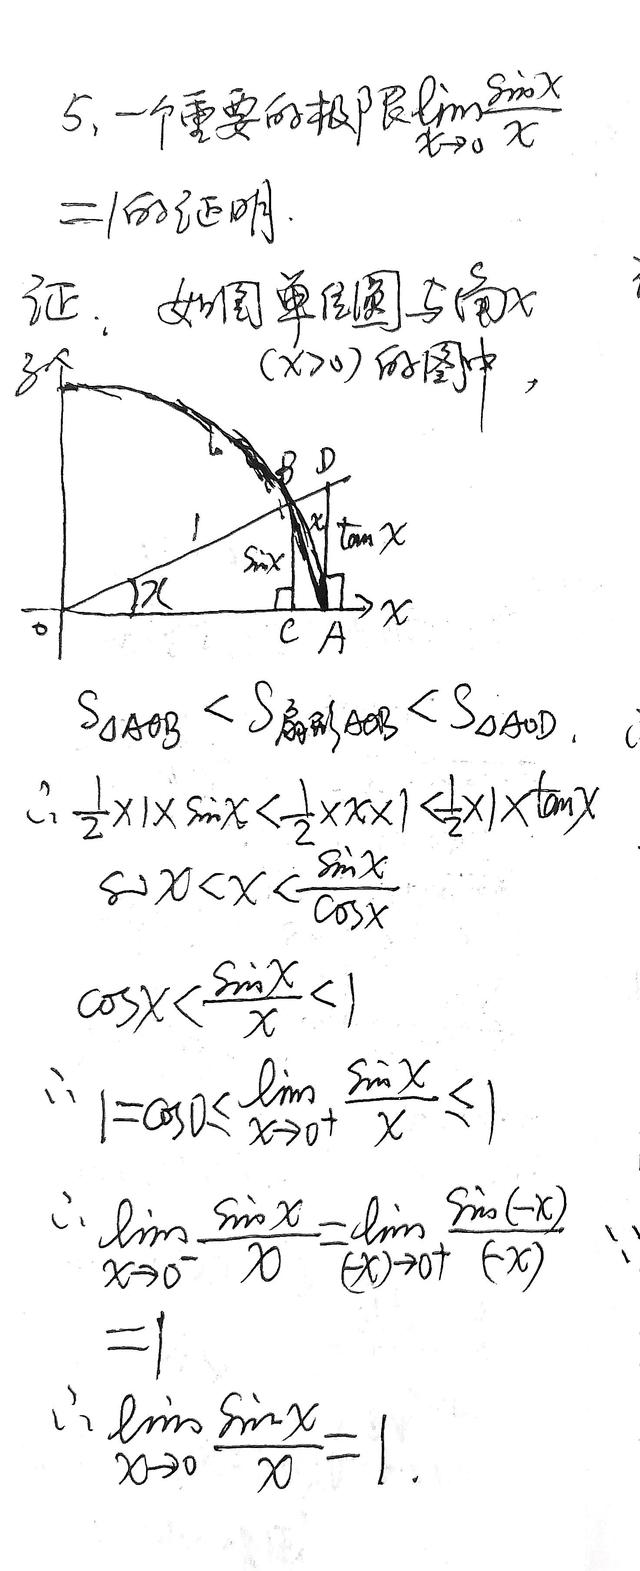 5、一个重要的极限 lim x→0 sinx/x
=1的证明.
证: 如图单位圆与角x
(x>0)的图中,
y
B D
1 x tanx
sinx
x
o C A x
S△AOB < S扇形AOB < S△AOD.
∴ 1/2×1×sinx < 1/2×x×1 < 1/2×1×tanx
sinx < x < sinx/cosx
cosx < sinx/x < 1
∴ 1=cos0≤ lim x→0+ sinx/x ≤ 1
∴ lim x→0- sinx/x = lim (-x)→0+ sin(-x)/(-x)
=1
∴ lim x→0 sinx/x = 1.